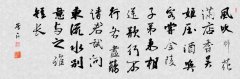 風吹柳花
滿店香吳
姬壓酒喚
客嘗金陵
子弟來相
送欲行不
行各盡觴
請君試問
東流水別
意與之誰
短長